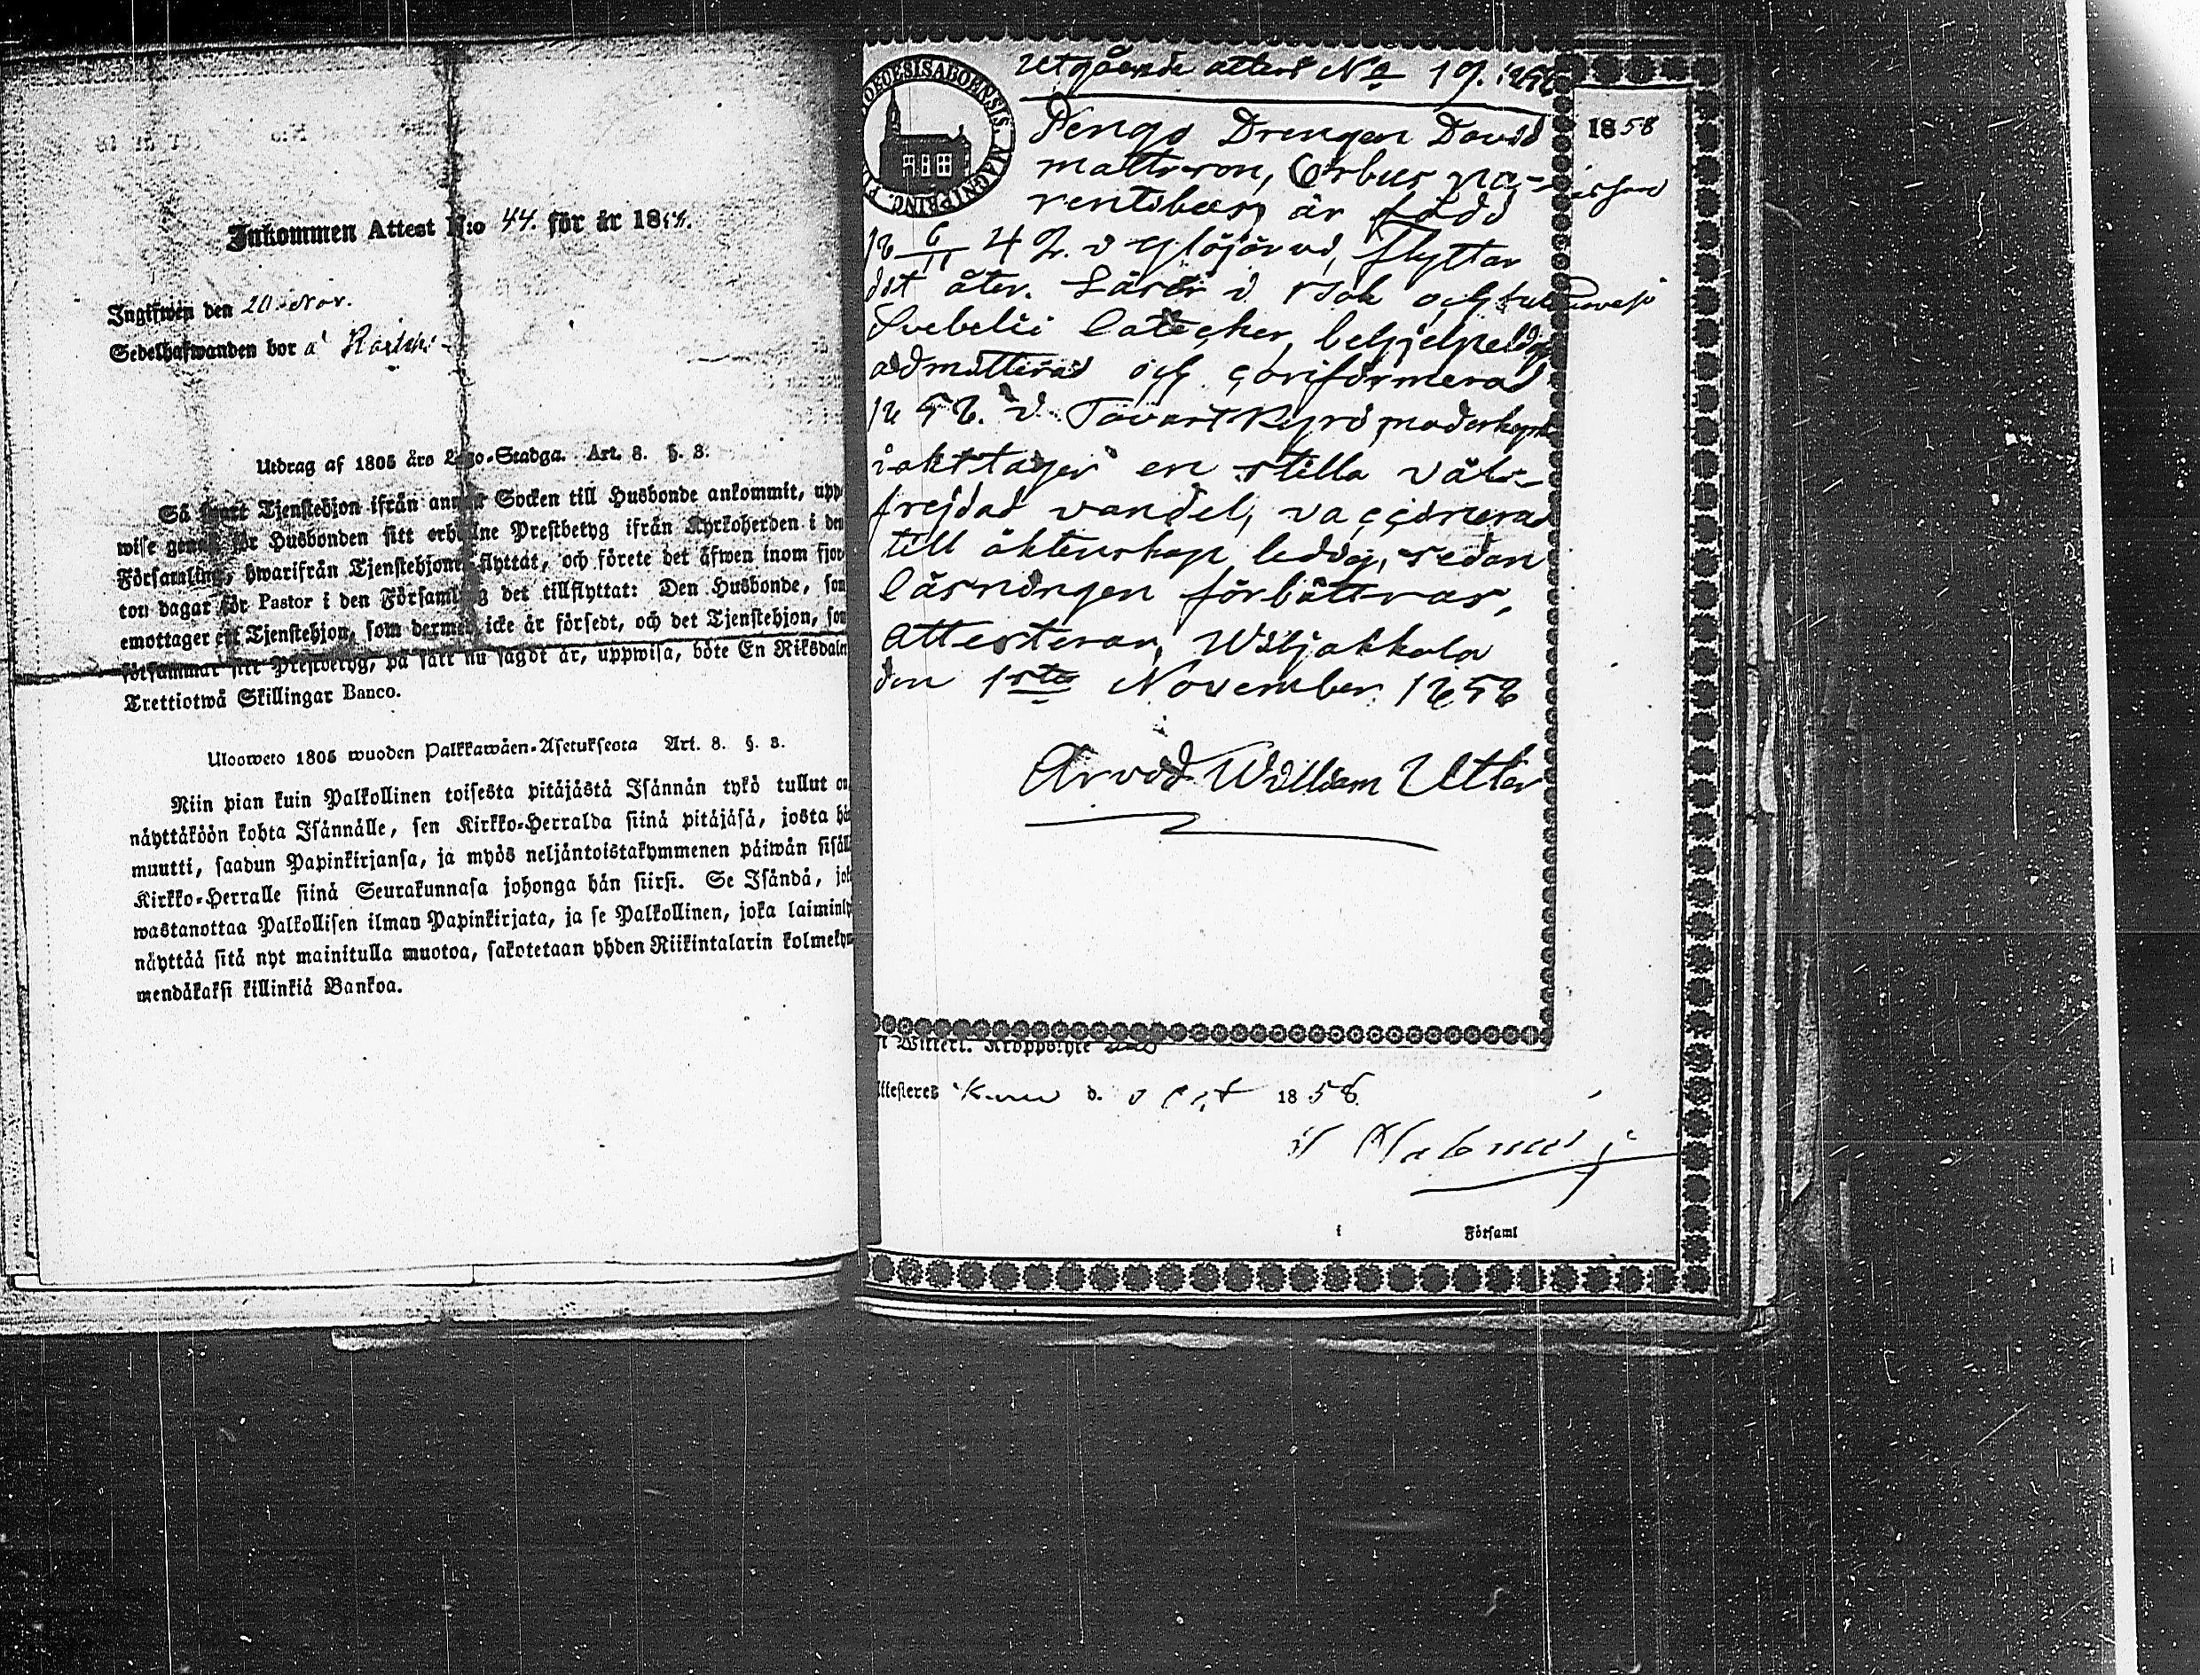 Inkommen Attest N:o 44. för år 1858.
Ingifwen den 20 Nov.
Sedelhafwanden bor å
Utdrag af 1805 års Lego-Stadga. Art. 8. §. 3.
Så snart Tjenstehjon ifrån annan Socken till Husbonde ankommit, upp-
wise genast för Husbonden sitt erhållne Prestbetyg ifrån Kyrkoherden i den
Församling, hwarifrån Tjenstehjonet flyttat, och förete det äfwen inom fjor-
ton dagar för Pastor i den Församling det tillflyttat: Den Husbonde, som
emottager ett Tjenstehjon, som dermed icke är försedt, och det Tjenstehjon, som
försummar sitt Prestbetyg, på sätt nu sagdt är, uppwisa, böte En Riksdaler
Trettiotwå Skillingar Banco.
Uloosweto 1805 wuoden Palkkawäen-Asetuksesta Art. 8. §. 3.
Niin pian kuin Palkollinen toisesta pitäjästä Isännän tykö tullut on
näyttäköön kohta Isännälle, sen Kirkko-Herralda siinä pitäjäsä, josta hän
muutti, saadun Papinkirjansa, ja myös neljäntoistakymmenen päiwän sisäll
Kirkko-Herralle siinä Seurakunnasa johonga hän siirsi. Se Isändä, joka
wastanottaa Palkollisen ilman Papinkirjata, ja se Palkollinen, joka laiminly
näyttää sitä nyt mainitulla muotoa, sakotetaan yhden Riikintalarin kolmekym-
mendäkaksi killinkiä Bankoa.
DIOECESIS ABOENSIS. MAGNI PRINC.
Utgående attest No 19. 1858
Pengo Drengen David
mattsson, Orbus pa-
rentibus, är född
18 6/11 42. i Ylöjärvi, flyttar
dit åter. Läser i bok och
Svebelii Cateches, behjelpeligt
admitterad och confirmerad
1858. i TavastKyrö moderkyrka
iakttager en stilla väl-
frejdad vandel, vaccinerad
till äktenskap ledig, sedan
läsningen förbättras,
attesterar, Wiljakkala
den 1sta November 1858
Arvid William Utter
1858
Attesteres d. 1858.
i Församl